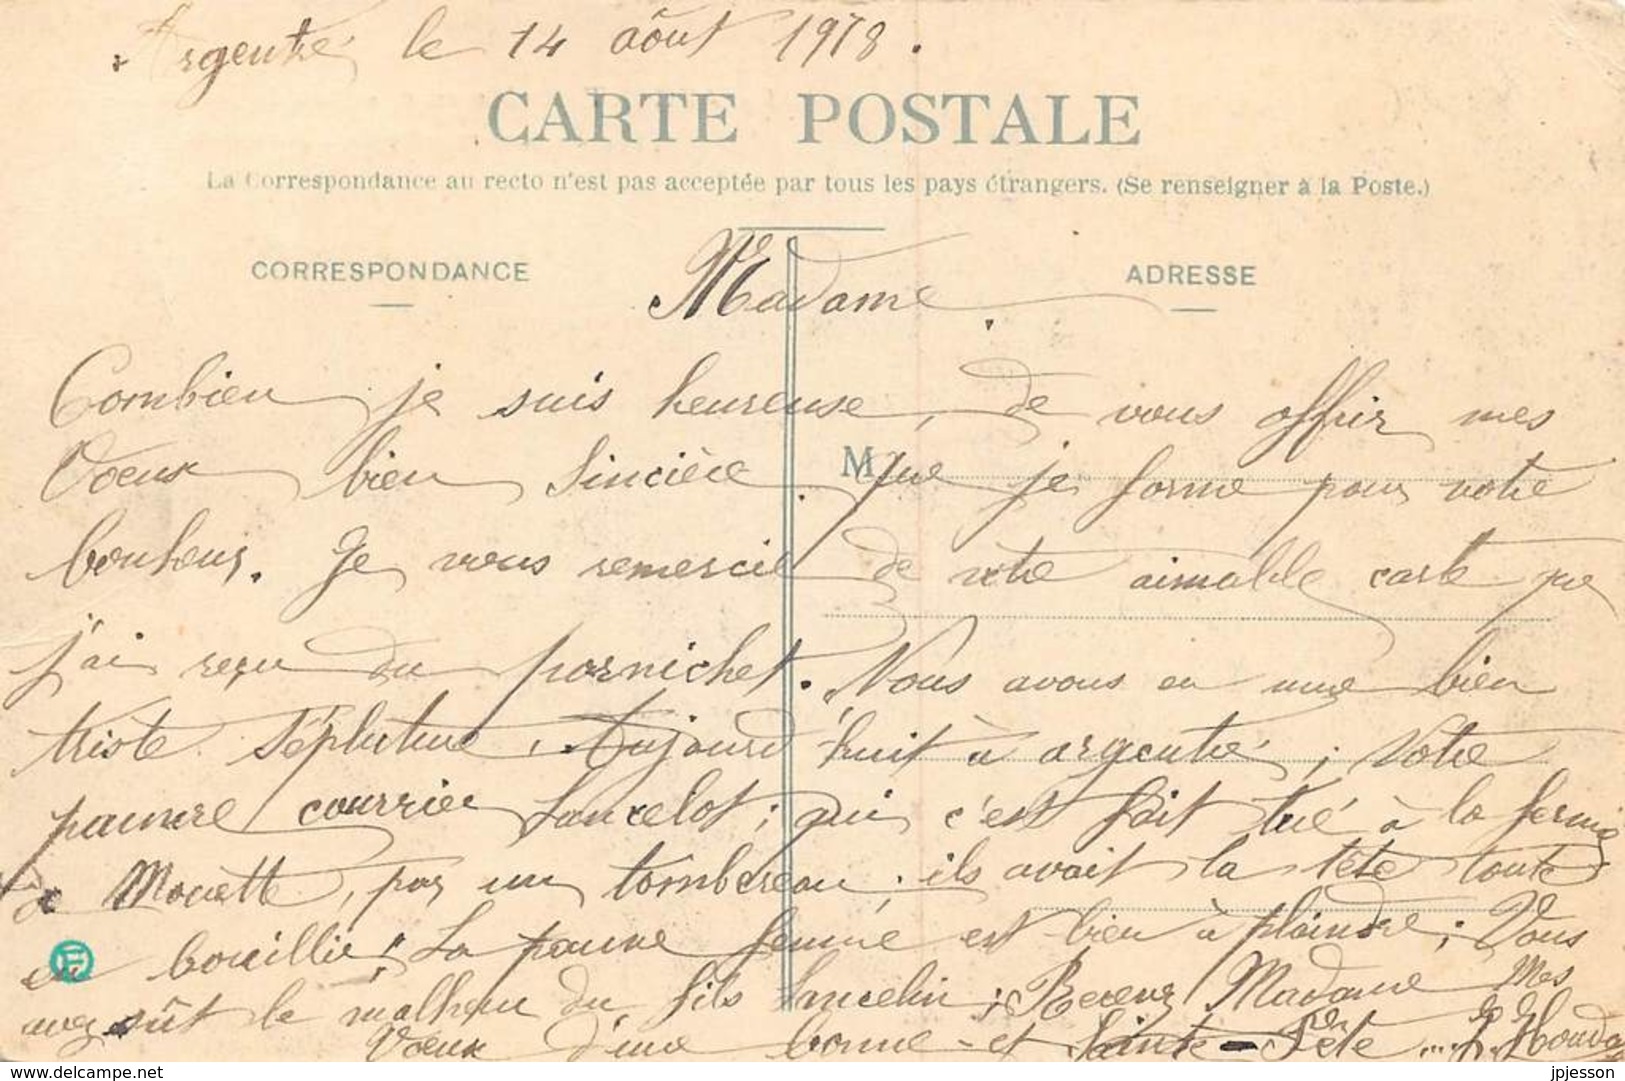 Argentré le 14 Août 1918.
CARTE POSTALE
La Correspondance au recto n'est pas acceptée par tous les pays étrangers. (Se renseigner à la Poste.)
CORRESPONDANCE
ADRESSE
Madame.
Combien je suis heureuse, de vous offrir mes
Voeux bien Sincière. que je forme pour votre
M
bonheur. Je vous remercie de votre aimable carte que
j'ai reçu du pornichet. Nous avons eu une bien
triste Sépluture, Aujourd'huit à argentré; Votre
pauvre courrier Lancelot; qui c'est fait tué à la ferme
de Mouette, par un tombereau; ils avait la tête toute
en bouillie! La pauvre femme est bien à plaindre; Vous
avez sût le malheur du fils Lancelin; Recevez Madame Mes
Voeux d'une bonne et Sainte-Fête
jpjesson